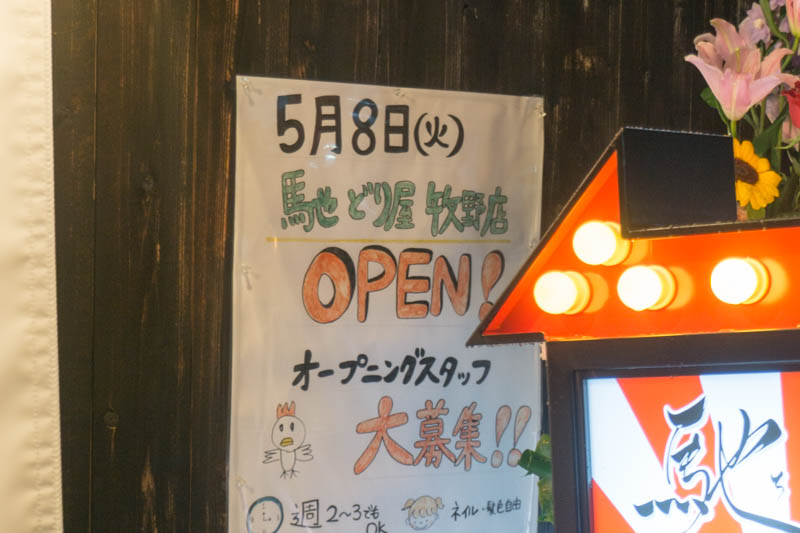 5月8日(火)
馳どり屋 牧野店
OPEN!
オープニングスタッフ
大募集!!
週2~3でも
OK
ネイル・髪色自由
馳